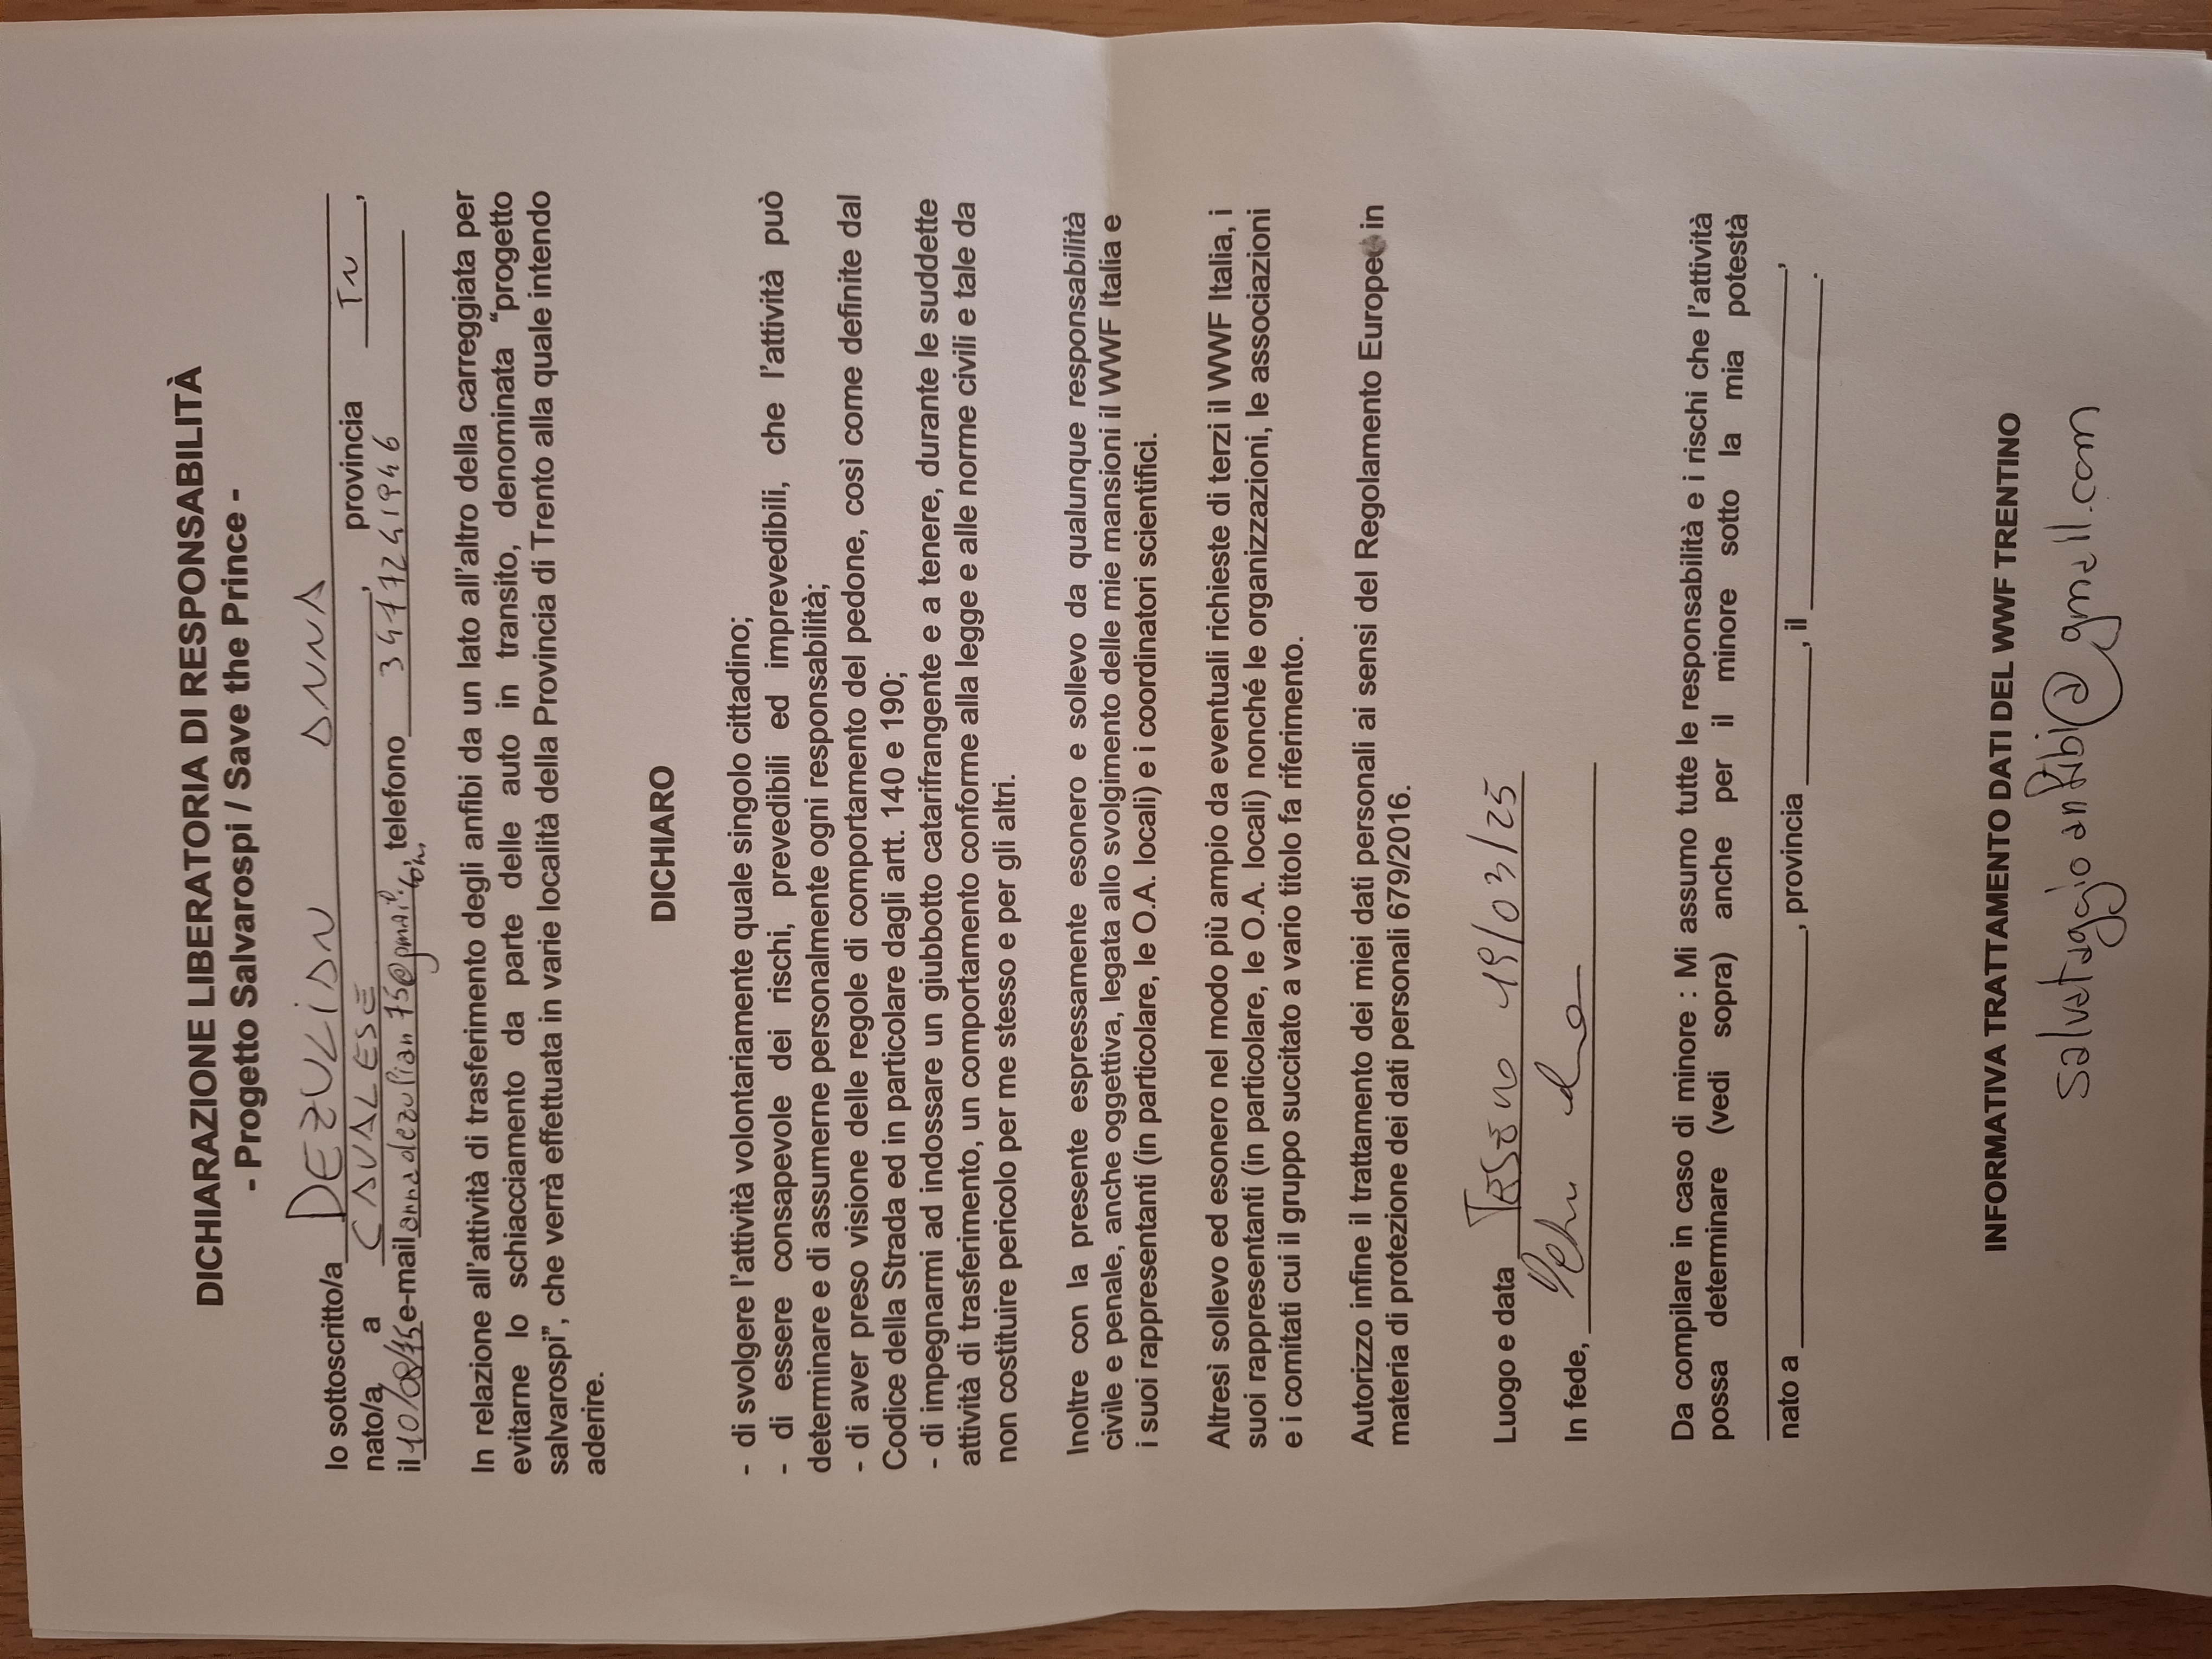 DICHIARAZIONE LIBERATORIA DI RESPONSABILITÀ
- Progetto Salvarospi / Save the Prince -
Io sottoscritto/a DEZULIAN ANNA
nato/a a CAVALESE, provincia TN,
il 10/08/75 e-mail annadezulian75@gmail.com, telefono 3477241946
In relazione all'attività di trasferimento degli anfibi da un lato all'altro della carreggiata per
evitarne lo schiacciamento da parte delle auto in transito, denominata “progetto
salvarospi”, che verrà effettuata in varie località della Provincia di Trento alla quale intendo
aderire.
DICHIARO
- di svolgere l'attività volontariamente quale singolo cittadino;
- di essere consapevole dei rischi, prevedibili ed imprevedibili, che l'attività può
determinare e di assumerne personalmente ogni responsabilità;
- di aver preso visione delle regole di comportamento del pedone, così come definite dal
Codice della Strada ed in particolare dagli artt. 140 e 190;
- di impegnarmi ad indossare un giubbotto catarifrangente e a tenere, durante le suddette
attività di trasferimento, un comportamento conforme alla legge e alle norme civili e tale da
non costituire pericolo per me stesso e per gli altri.
Inoltre con la presente espressamente esonero e sollevo da qualunque responsabilità
civile e penale, anche oggettiva, legata allo svolgimento delle mie mansioni il WWF Italia e
i suoi rappresentanti (in particolare, le O.A. locali) e i coordinatori scientifici.
Altresì sollevo ed esonero nel modo più ampio da eventuali richieste di terzi il WWF Italia, i
suoi rappresentanti (in particolare, le O.A. locali) nonché le organizzazioni, le associazioni
e i comitati cui il gruppo succitato a vario titolo fa riferimento.
Autorizzo infine il trattamento dei miei dati personali ai sensi del Regolamento Europeo in
materia di protezione dei dati personali 679/2016.
Luogo e data Tesero 19/03/25
In fede,
Da compilare in caso di minore : Mi assumo tutte le responsabilità e i rischi che l'attività
possa determinare (vedi sopra) anche per il minore sotto la mia potestà
,
nato a , provincia , il .
INFORMATIVA TRATTAMENTO DATI DEL WWF TRENTINO
salvataggioanfibi@gmail.com